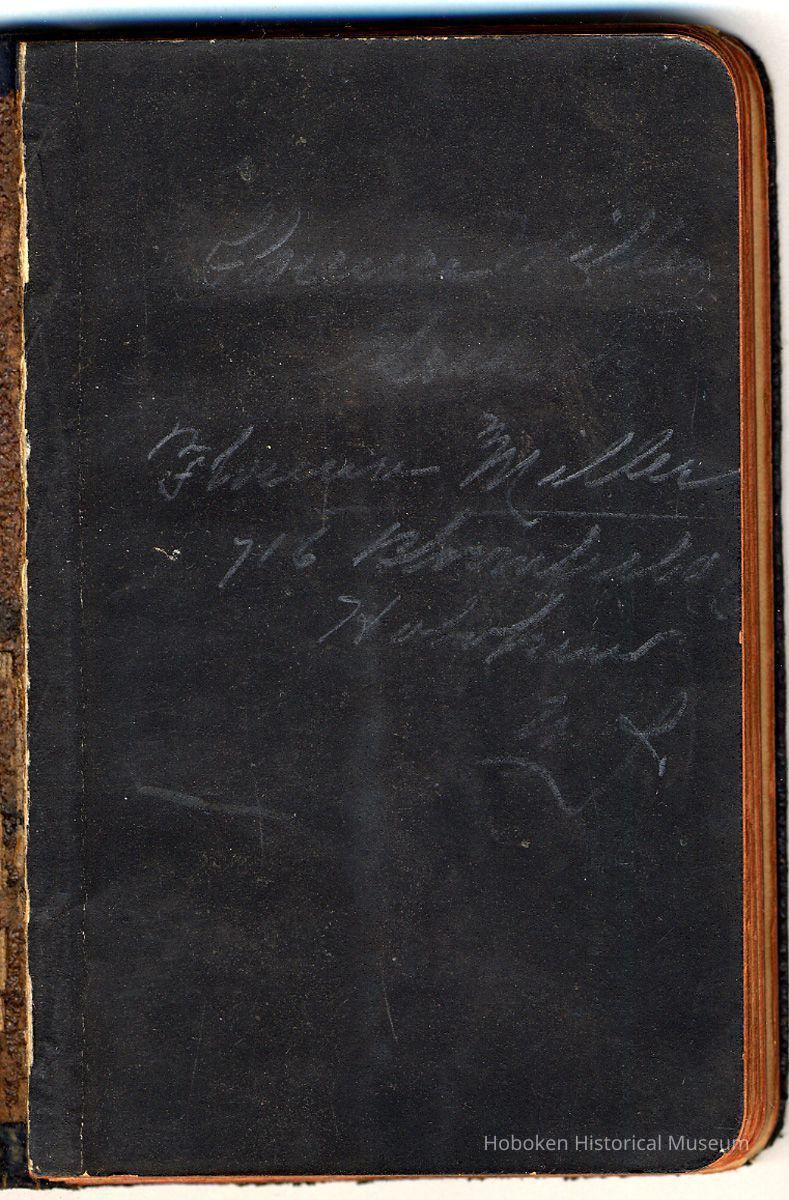 Florence Miller
Florence Miller
716 Bloomfield
Hoboken
N. J.
Hoboken Historical Museum